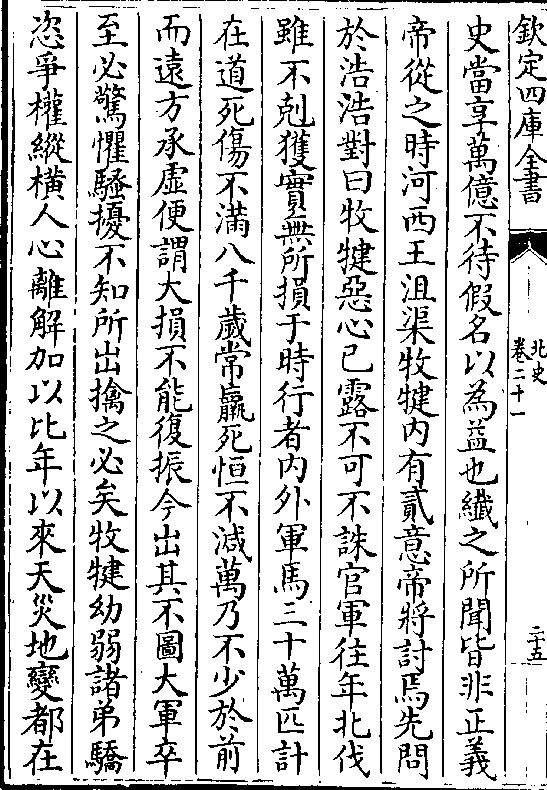 欽定四庫全書
北史
卷二十一
二十五
史當享萬億不待假名以為益也纎之所聞皆非正義
帝從之時河西王沮渠牧犍内有貳意帝將討焉先問
於浩浩對曰牧犍惡心已露不可不誅官軍往年北伐
雖不剋獲實無所損于時行者内外軍馬三十萬匹計
在道死傷不滿八千歲常羸死恒不減萬乃不少於前
而遠方承虛便謂大損不能復振今出其不圖大軍卒
至必驚懼騷擾不知所出擒之必矣牧犍幼弱諸弟驕
恣爭權縱橫人心離解加以比年以來天災地變都在